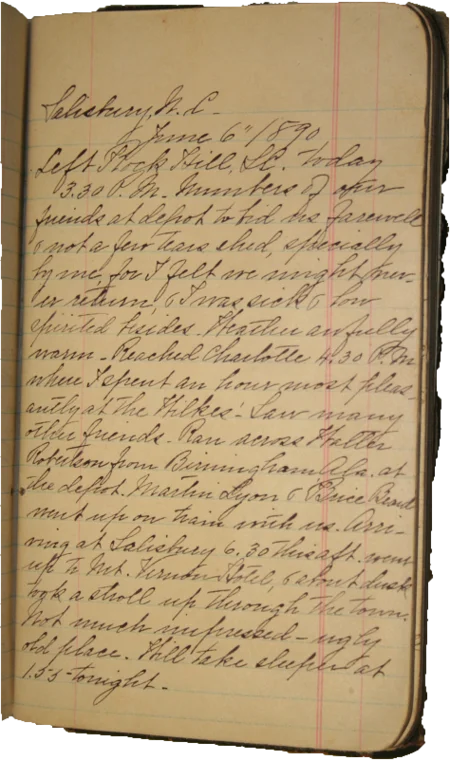 Salisbury, N. C -
June 6" 1890
Left Rock Hill, S.C. today
3.30 P.M. Numbers of our
friends at depot to bid us farewell
& not a few tears shed, specially
by me, for I felt we might nev-
er return, & I was sick & low
spirited besides. Weather awfully
warm - Reached Charlotte 4.30 P.M
where I spent an hour most pleas-
antly at the Wilkes'- Saw many
other friends. Ran across Walter
Robertson from Birmingham Ala. at
the depot. Martin Lyon & Brice Beard
went up on train with us. Arri-
ving at Salisbury 6.30 this aft. went
up to Mt. Vernon Hotel, & about dusk
took a stroll up through the town.
Not much impressed - ugly
old place. Will take sleeper at
1.55 tonight -